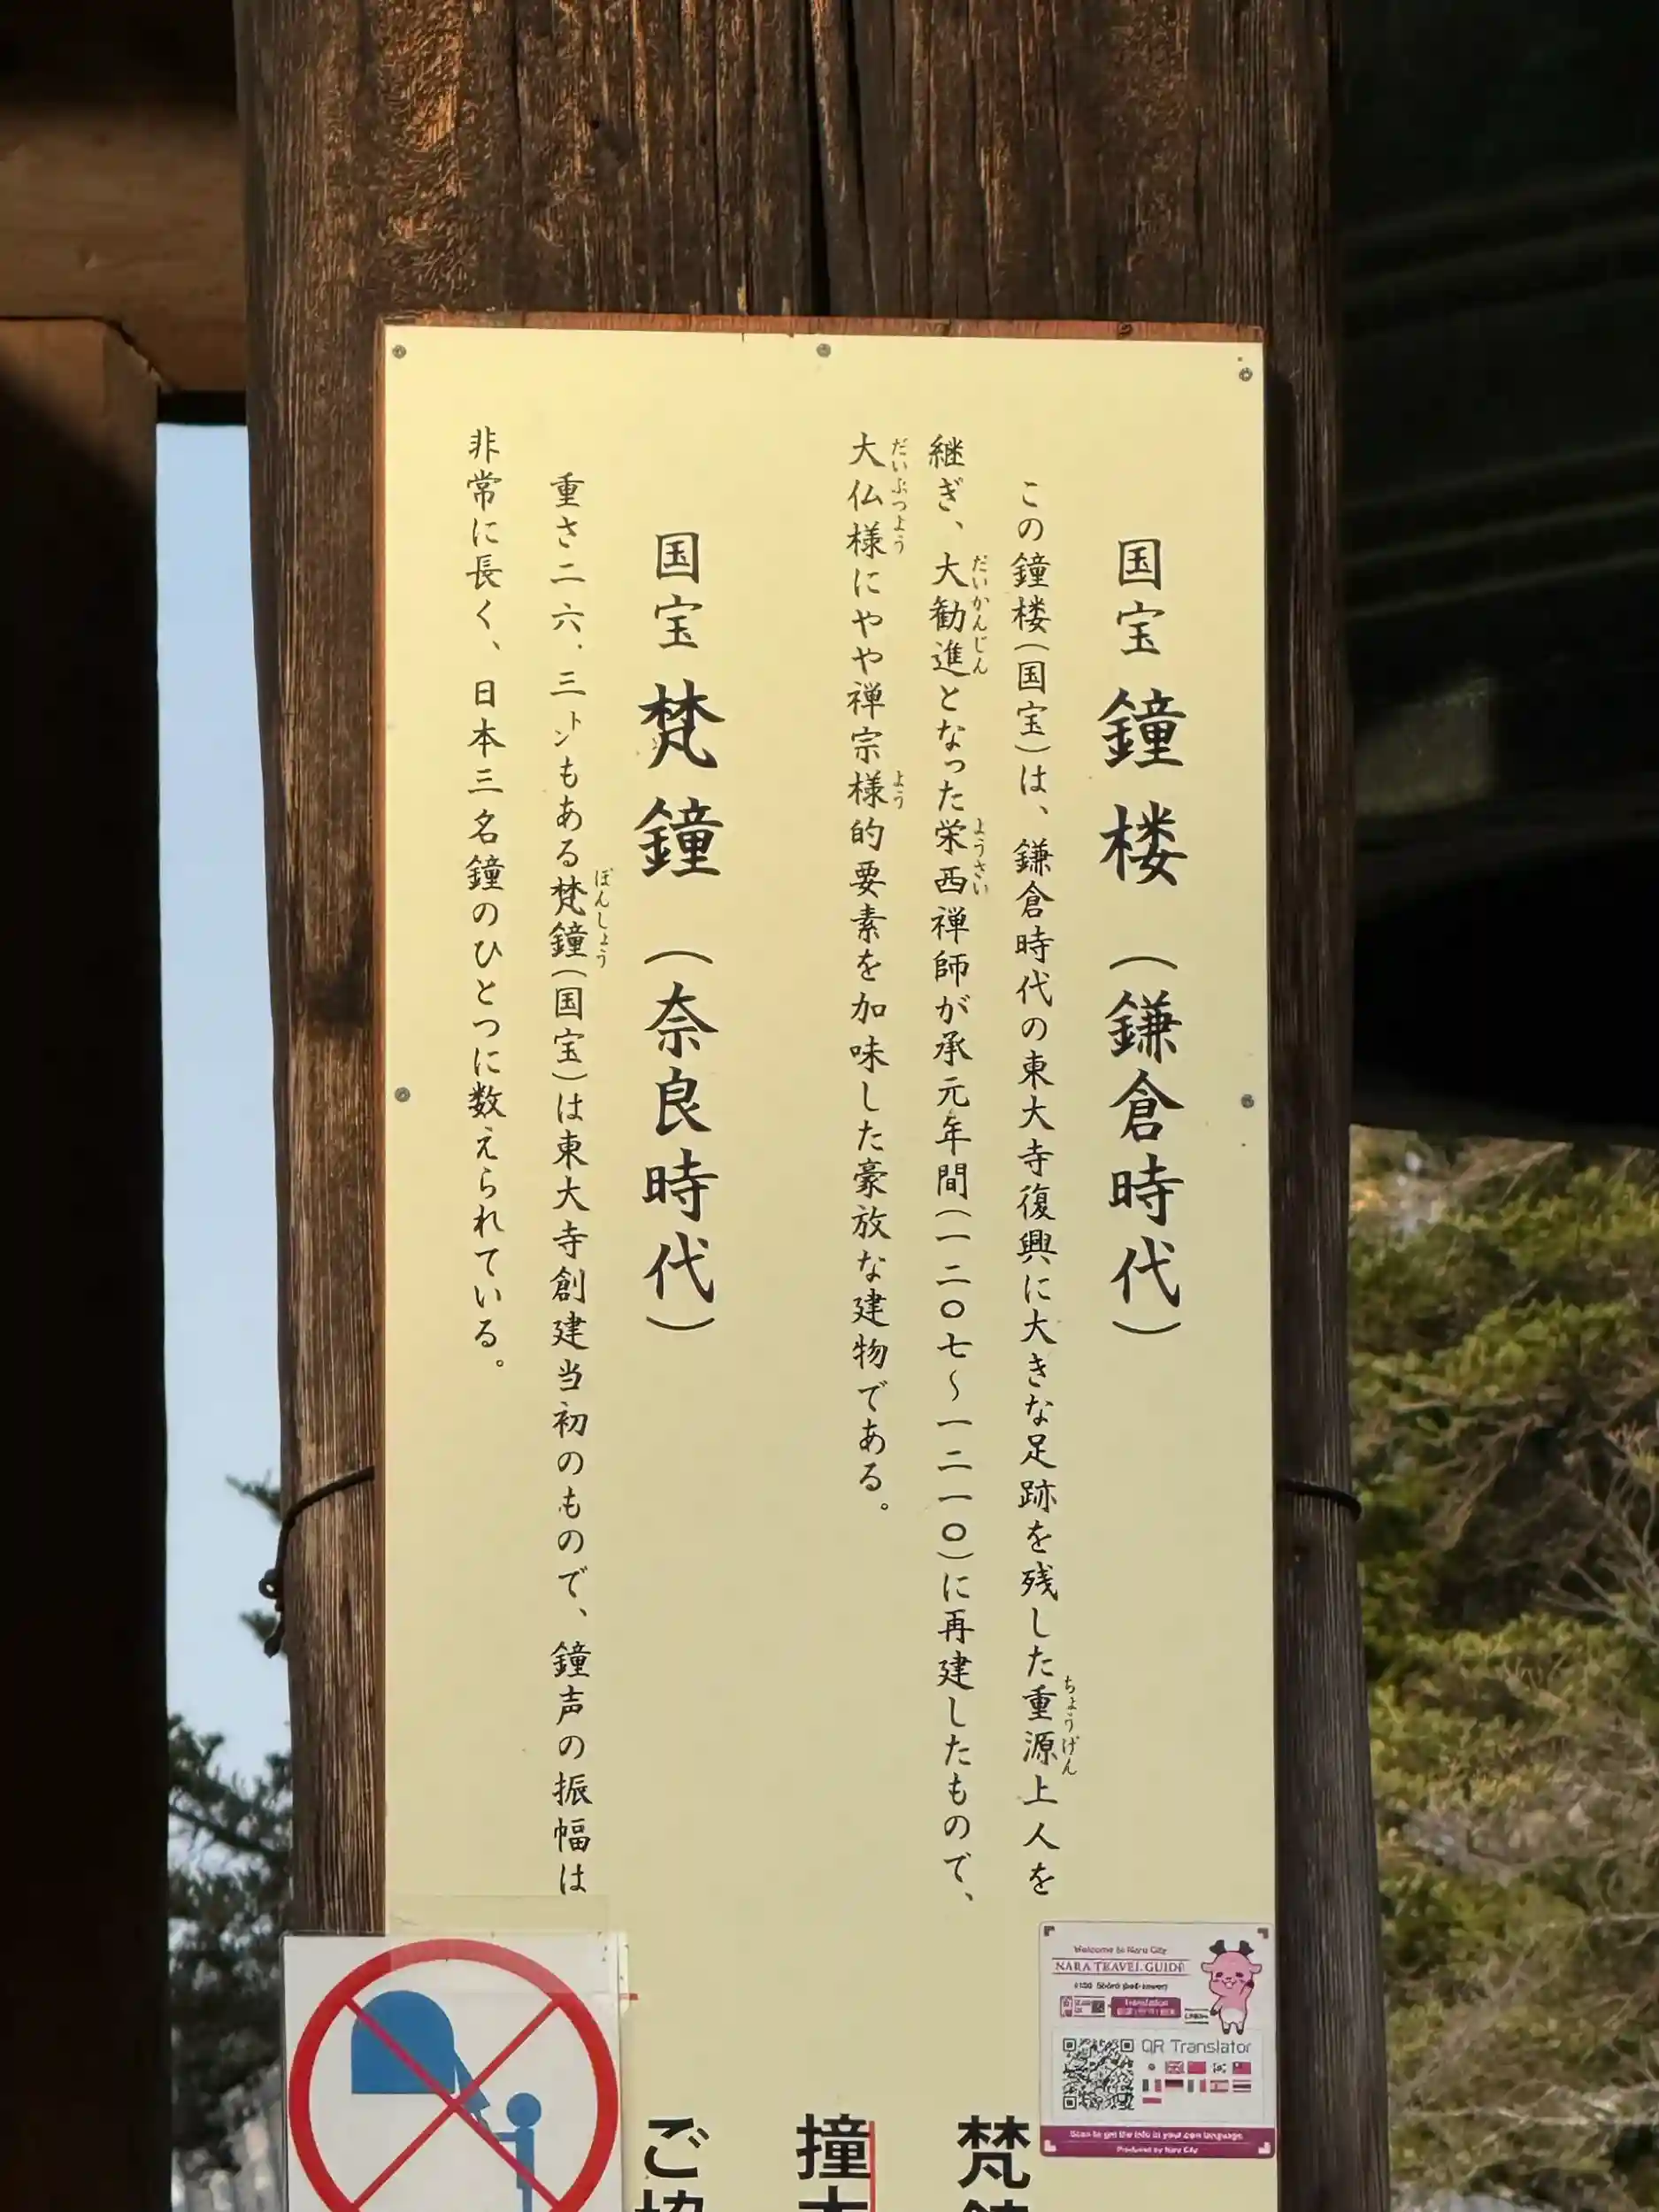 国宝 鐘楼（鎌倉時代）
この鐘楼（国宝）は、鎌倉時代の東大寺復興に大きな足跡を残した重源上人を
ちょうげん
継ぎ、大勧進となった栄西禅師が承元年間（一二〇七～一二一〇）に再建したもので、
だいかんじん
ようさい
大仏様にやや禅宗様的要素を加味した豪放な建物である。
だいぶつよう
よう
国宝 梵鐘（奈良時代）
重さ二六．三㌧もある梵鐘（国宝）は東大寺創建当初のもので、鐘声の振幅は
ぼんしょう
非常に長く、日本三名鐘のひとつに数えられている。
Welcome to Nara City
NARA TRAVEL GUIDE
Translation
QR Translator
Scan to get the info in your own language.
Produced by Nara City
梵鐘
撞木
ご協